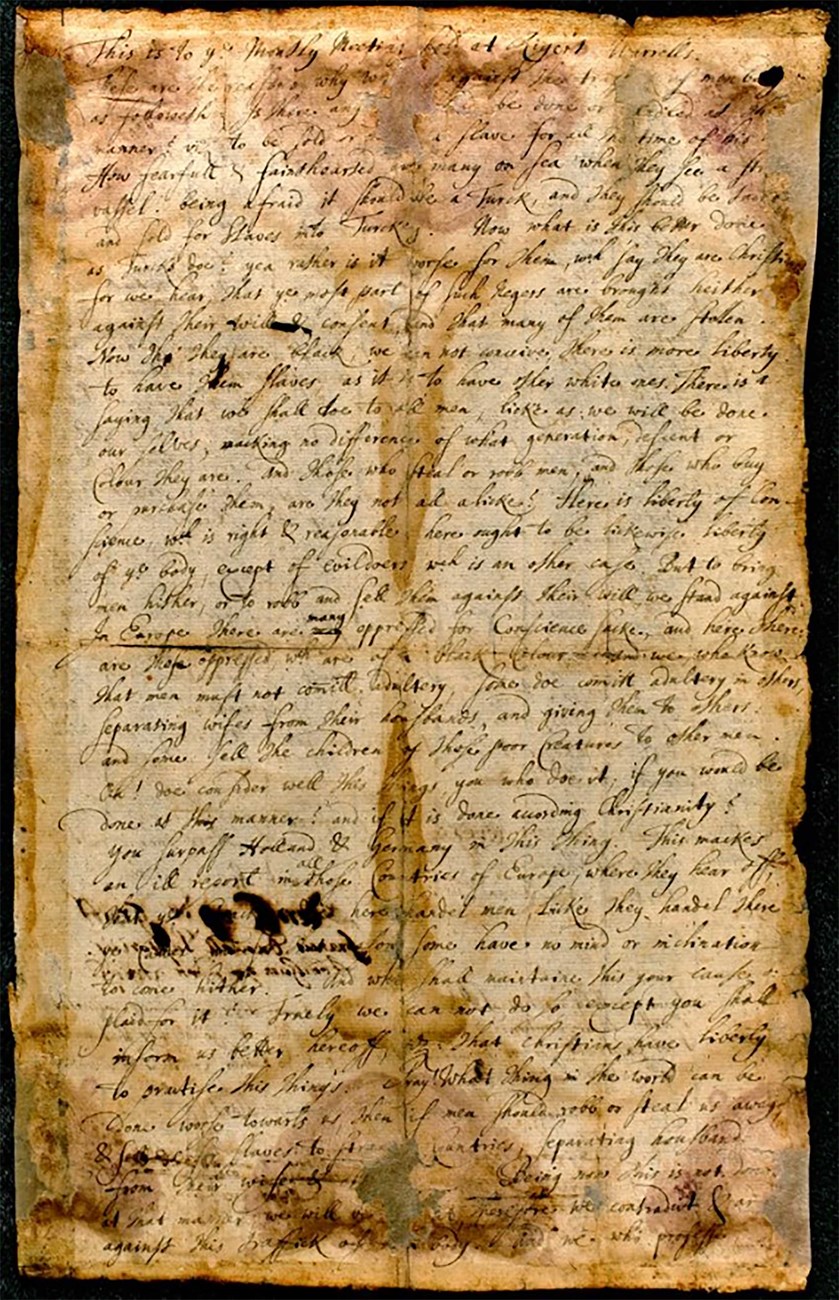 This is to ye Monthly Meeting held at Rigert Worrells.
These are the reasons why we against the traf of men body
as followeth: Is there any be done or handled at this
manner? viz to be sold or a slave for all the time of his
How fearfull & fainthearted are many on sea when they see a str
vassel. being afraid it should be a Turck, and they should be tacken
and sold for Slaves into Turckey. Now what is this better done
as Turcks doe? yea rather is it worse for them, wch say they are Christi
for we hear, that ye most part of such Negers are brought heither
against their will & consent, and that many of them are stollen.
Now tho they are black, we can not conceive there is more liberty
to have them slaves, as it is to have other white ones. There is a
saying that we shall doe to all men, licke as we will be done
our selves, macking no difference of what generation, descent or
Colour they are. And those who steal or robb men, and those who buy
or purchase them, are they not all alicke? Here is liberty of Con-
science, wch is right & reasonable, here ought to be lickewise liberty
of ye body, except of evildoers, wch is an other case. But to bring
men hither, or to robb and sell them against their will, we stand against.
In Europe there are many oppressed for Conscience sacke, and here there
are those oppressed wch are of a black Colour. we who know
that men must not comitt adultery, some doe comitt adultery in others,
separating wifes from their housbands, and giving them to others.
and some sell the children of those poor Creatures to other men.
Oh! doe consider well this things, you who doe it, if you would be
done at this manner? and if it is done according Christianity?
You surpass Holland & Germany in this thing. This mackes
an ill report in all those Countries of Europe, where they hear off,
that ye here handel men, licke they handel there
for some have no mind or inclination
to come hither. And who shall maintaine this your cause or
plaid for it? Truely we can not do so except you shall
inform us better hereoff, viz: that christians have liberty
to practise this things. Pray! What thing in the world can be
done worse towarts us, then if men should robb or steal us away,
& sell slaves to strange Countries, separating housband
from their wifes & Being now this is not done
at that manner we will be therefore we contradict & are
against this traffick of men body. And we who profess